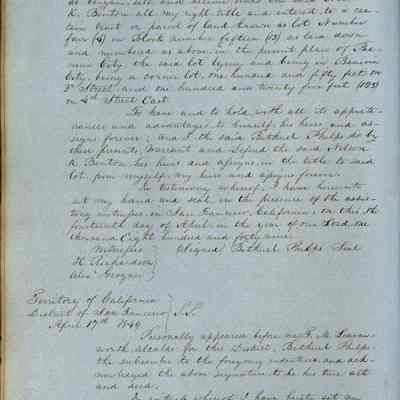 as bargain, sell and
K. Benton all my right title and interest to a cer
tain tract or parcel of land known as lot Number
four (4) in Block number fifteen (15) as laid down
and numbered as above in the present plan of Be
nicia City, the said lot lying and being in Benicia
City, being a corner lot, one hundred and fifty feet on
F Street and one hundred and twenty five feet (125)
on 4th Street East.
To have and to hold with all its appurte
nances and advantages to himself, his heirs and as
signs forever; and I the said Bethuel Phelps do by
these presents, Warrant and Defend the said Nelson
K. Benton his heirs and assigns, in the title to said
lot from myself, my heirs and assigns forever.
In testimony whereof, I have hereunto
set my hand and seal in the presence of the attes
ting witnesses in San Francisco California, on this the
fourteenth day of April in the year of our Lord one
thousand Eight hundred and forty nine.
Witnesses Signed, Bethuel Phelps Seal
H. Richardson
Alexr Grogan
Territory of California
District of San Francisco S.S.
April 17th 1849
Personally appeared before me, T. M. Leaven
worth Alcalde for this District, Bethuel Phelps
the subscriber to the foregoing indenture and ack
nowledged the above signature to be his true act
and deed.
In witness whereof I have hereto set my